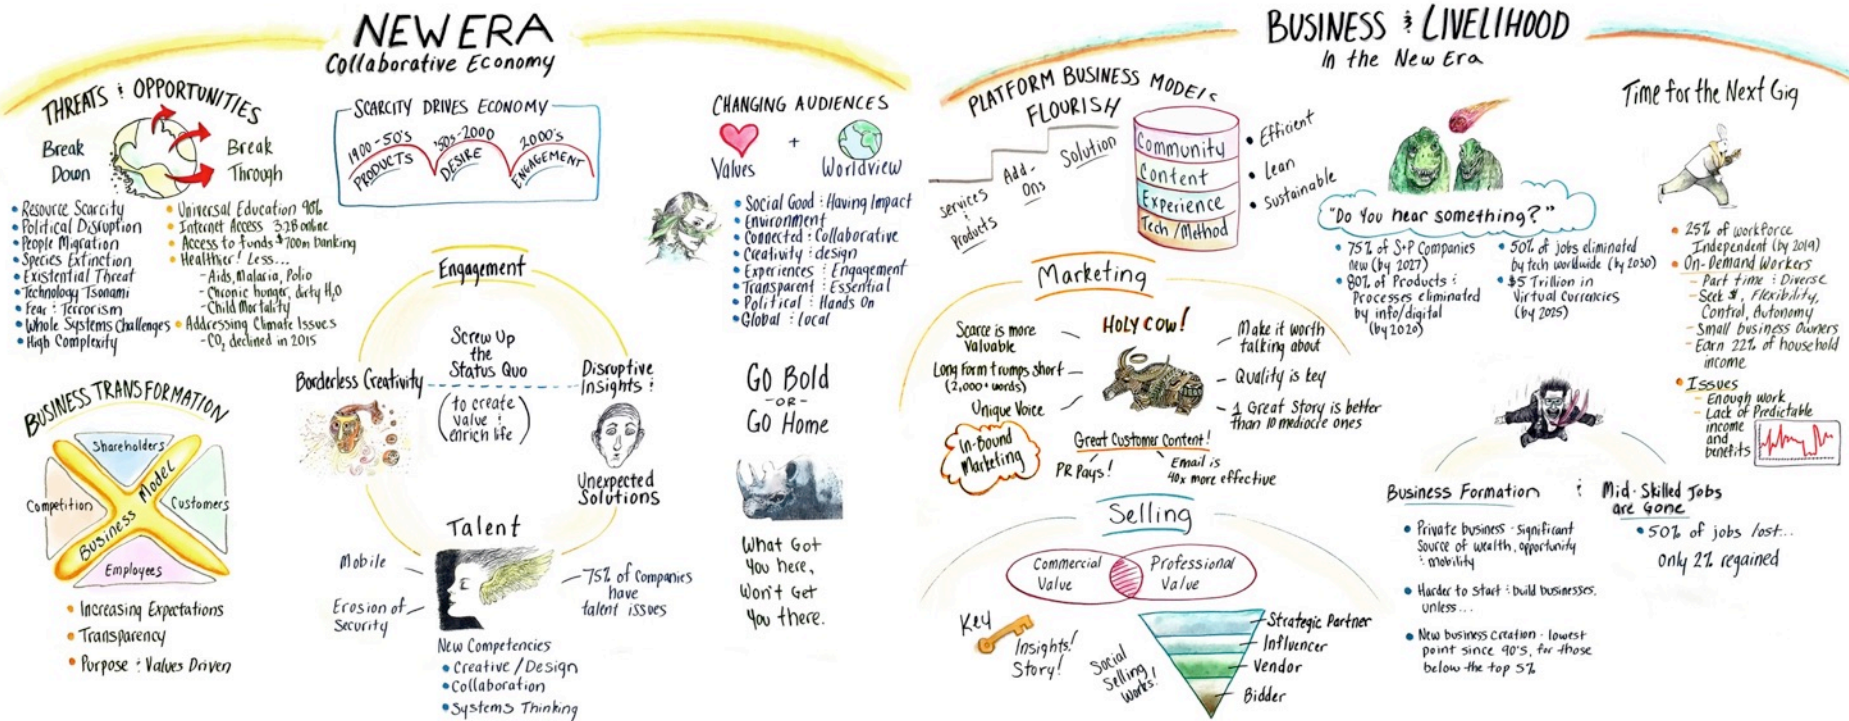 NEW ERA
Collaborative Economy
THREATS & OPPORTUNITIES
Break
Down
Break
Through
• Resource Scarcity
• Political Disruption
• People Migration
• Species Extinction
• Existential Threat
• Technology Tsonami
• Fear & Terrorism
• Whole Systems Challenges
• High Complexity
• Universal Education 90%
• Internet Access 3.2B online
• Access to funds $700m banking
• Healthier! Less...
- Aids, Malaria, Polio
- Chronic hunger, dirty H2O
- Child Mortality
• Addressing Climate Issues
- CO2 declined in 2015
SCARCITY DRIVES ECONOMY
1900-50's
PRODUCTS
'50s-2000
DESIRE
2000's
ENGAGEMENT
CHANGING AUDIENCES
+
Values
Worldview
• Social Good & Having Impact
• Environment
• Connected & Collaborative
• Creativity & design
• Experiences & Engagement
• Transparent & Essential
• Political & Hands On
• Global & local
Engagement
Screw Up
the
Status Quo
(to create
value &
enrich life)
Borderless Creativity
Disruptive
Insights &
Unexpected
Solutions
Talent
Mobile
Erosion of
Security
75% of Companies
have
talent issues
New Competencies
• Creative/Design
• Collaboration
• Systems Thinking
GO BOLD
-OR-
GO Home
What Got
you here,
Won't Get
you there.
BUSINESS TRANSFORMATION
Shareholders
Competition
Customers
Employees
Business Model
• Increasing Expectations
• Transparency
• Purpose & Values Driven
BUSINESS & LIVELIHOOD
In the New Era
PLATFORM BUSINESS MODELS
FLOURISH
Services
&
Products
Add-
Ons
Solution
Community
Content
Experience
Tech/Method
• Efficient
• Lean
• Sustainable
Marketing
HOLY COW!
Scarce is more
Valuable
Long Form trumps short
(2,000+ words)
Unique Voice
In-Bound
Marketing
Make it worth
talking about
Quality is key
1 Great Story is better
than 10 mediocre ones
Great Customer Content!
PR Pays!
Email is
40x more effective
Selling
Commercial
Value
Professional
Value
Key
Insights!
Story!
Social
Selling
Works!
Strategic Partner
Influencer
Vendor
Bidder
"Do You hear something?"
• 75% of S+P Companies
new (by 2027)
• 80% of Products &
Processes eliminated
by info/digital
(by 2020)
• 50% of jobs eliminated
by tech worldwide (by 2030)
• $5 Trillion in
Virtual Currencies
(by 2025)
Time for the Next Gig
• 25% of workforce
Independent (by 2019)
• On-Demand Workers
- Part time & Diverse
- Seek $, Flexibility,
Control, Autonomy
- Small business Owners
- Earn 22% of household
income
• Issues
- Enough work
- Lack of Predictable
income
and
benefits
Business Formation
&
• Private business - significant
Source of wealth, opportunity
& mobility
• Harder to start & build businesses,
unless...
• New business creation - lowest
point since 90's, for those
below the top 5%
Mid-Skilled Jobs
are Gone
• 50% of jobs lost...
only 2% regained